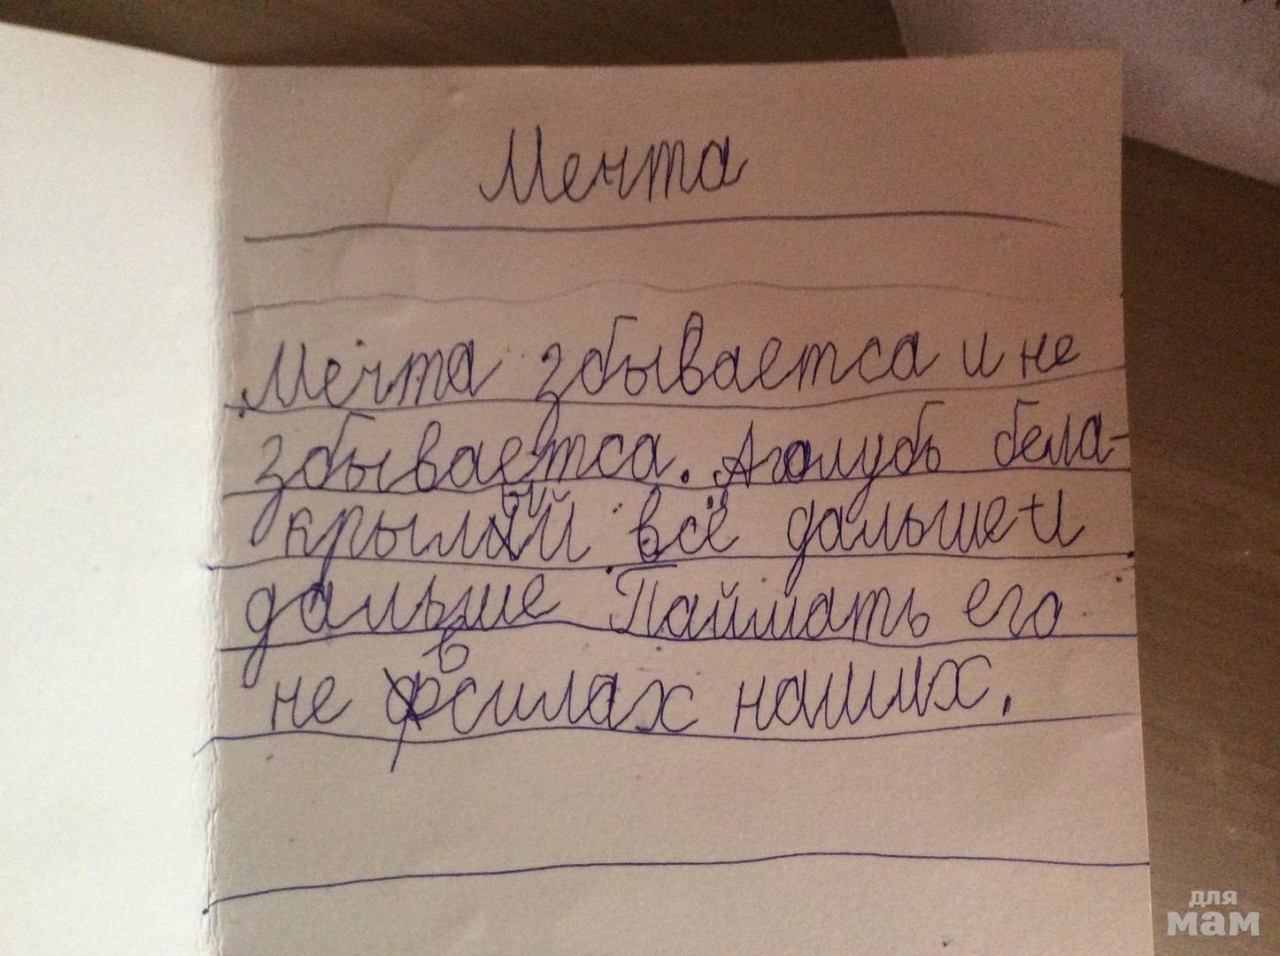 Мечта
Мечта збываетса и не
збываетса. А голубь бела-
крылый всё дальше и
дальше Паймать его
не в силах наших.
для
мам